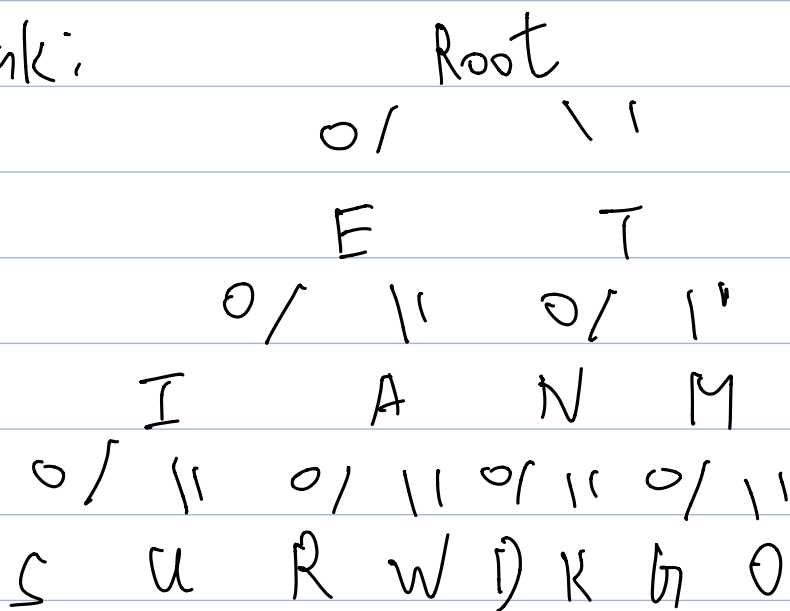 nk: Root
0 1
E T
0 1 0 1
I A N M
0 1 0 1 0 1 0 1
S U R W D K G O